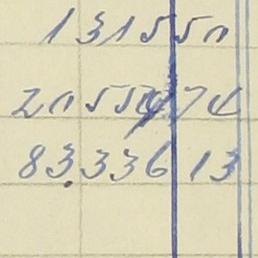 1315 50
20554 74
83336 13